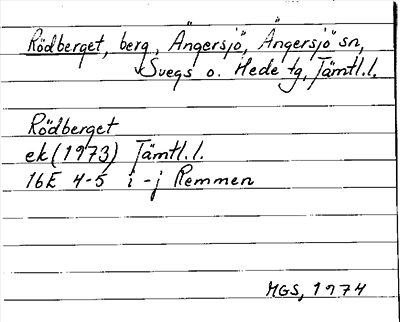 Rödberget, berg, Ängersjö, Ängersjö sn,
Svegs o. Hede tg, Jämtl.l.
Rödberget
ek (1973) Jämtl.l.
16E 4-5 i-j Remmen
MGS, 1974